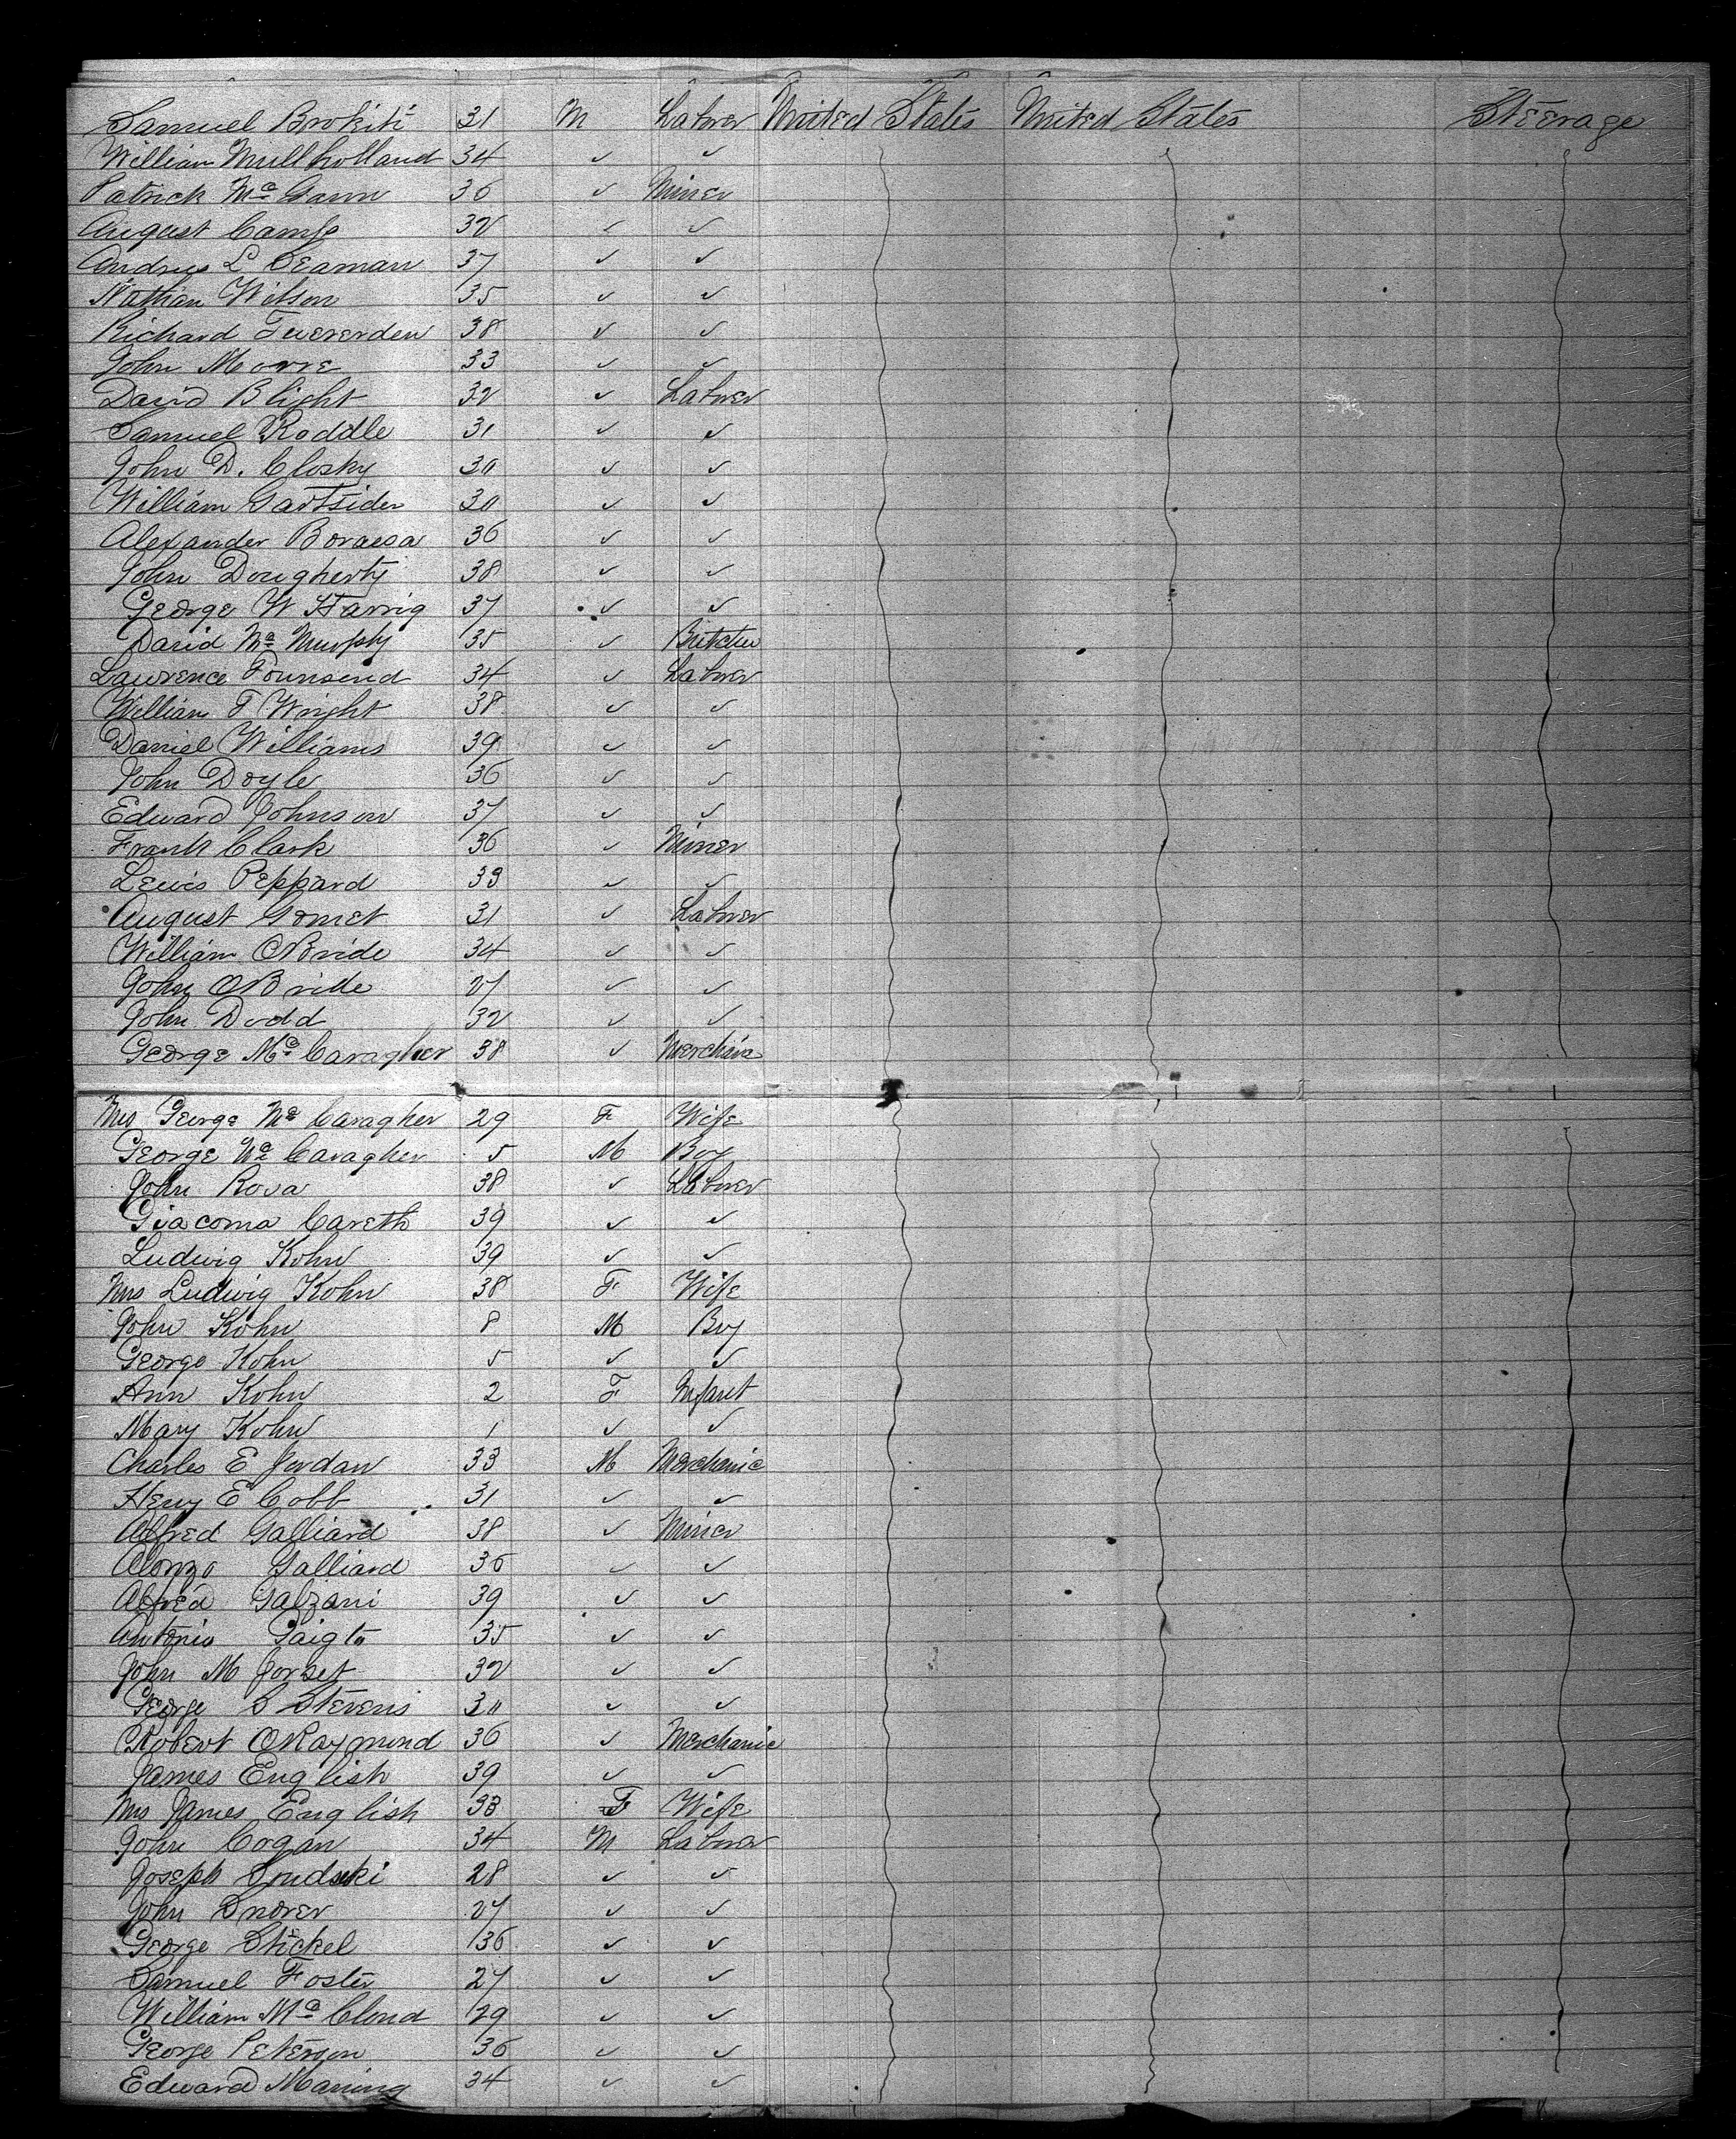 Samuel Brokiti 31 M Labrer United States United States Steerage
William Mullholland 34 ✓ ✓
Patrick Mc Gann 36 ✓ Miner
August Camp 32 ✓ ✓
Andrus L Beaman 37 ✓ ✓
Nathan Wilson 35 ✓ ✓
Richard 38 ✓ ✓
John Moore 33 ✓ ✓
David Blight 32 ✓ Labrer
Samuel Roddle 31 ✓ ✓
John D. Closky 30 ✓ ✓
William Gartsiden 30 ✓ ✓
Alexander 36 ✓ ✓
John Dougherty 38 ✓ ✓
George W Harrig 37 ✓ ✓
David Mc Murphy 35 ✓ Butcher
Lawrence Townsend 34 ✓ Labrer
William T Wright 38 ✓ ✓
Daniel Williams 39 ✓ ✓
John Doyle 36 ✓ ✓
Edward Johnson 37 ✓ ✓
Frank Clark 36 ✓ Miner
Lewis Peppard 33 ✓ ✓
August Gomet 31 ✓ Labrer
William OBride 34 ✓ ✓
John OBride 27 ✓ ✓
John Dodd 32 ✓ ✓
George Mc Caragher 38 ✓
Mrs George Mc Caragher 29 F Wife
George Mc Caragher 5 M Boy
John Rova 38 ✓ Labrer
Giacoma Careth 39 ✓ ✓
Ludwig Kohn 39 ✓ ✓
Mrs Ludwig Kohn 38 F Wife
John Kohn 8 M Boy
George Kohn 5 ✓ ✓
Ann Kohn 2 F Infant
Mary Kohn 1 ✓ ✓
Charles E Jordan 33 M Merchanic
Heny E Cobb 31 ✓ ✓
Alfred Galliard 38 ✓ Miner
Alonzo Galliard 36 ✓ ✓
Alfred Galzani 39 ✓ ✓
Antonio Gaigto 35 ✓ ✓
John M Jorset 32 ✓ ✓
George S Stevens 30 ✓ ✓
Robert ORaymond 36 ✓ Merchanic
James English 39 ✓ ✓
Mrs James English 33 F Wife
John Cogan 34 M Labrer
Joseph 28 ✓ ✓
John Snorer 27 ✓ ✓
George Stickel 36 ✓ ✓
Samuel Foster 27 ✓ ✓
William Mc Cloud 29 ✓ ✓
George Peterson 36 ✓ ✓
Edward Maning 34 ✓ ✓